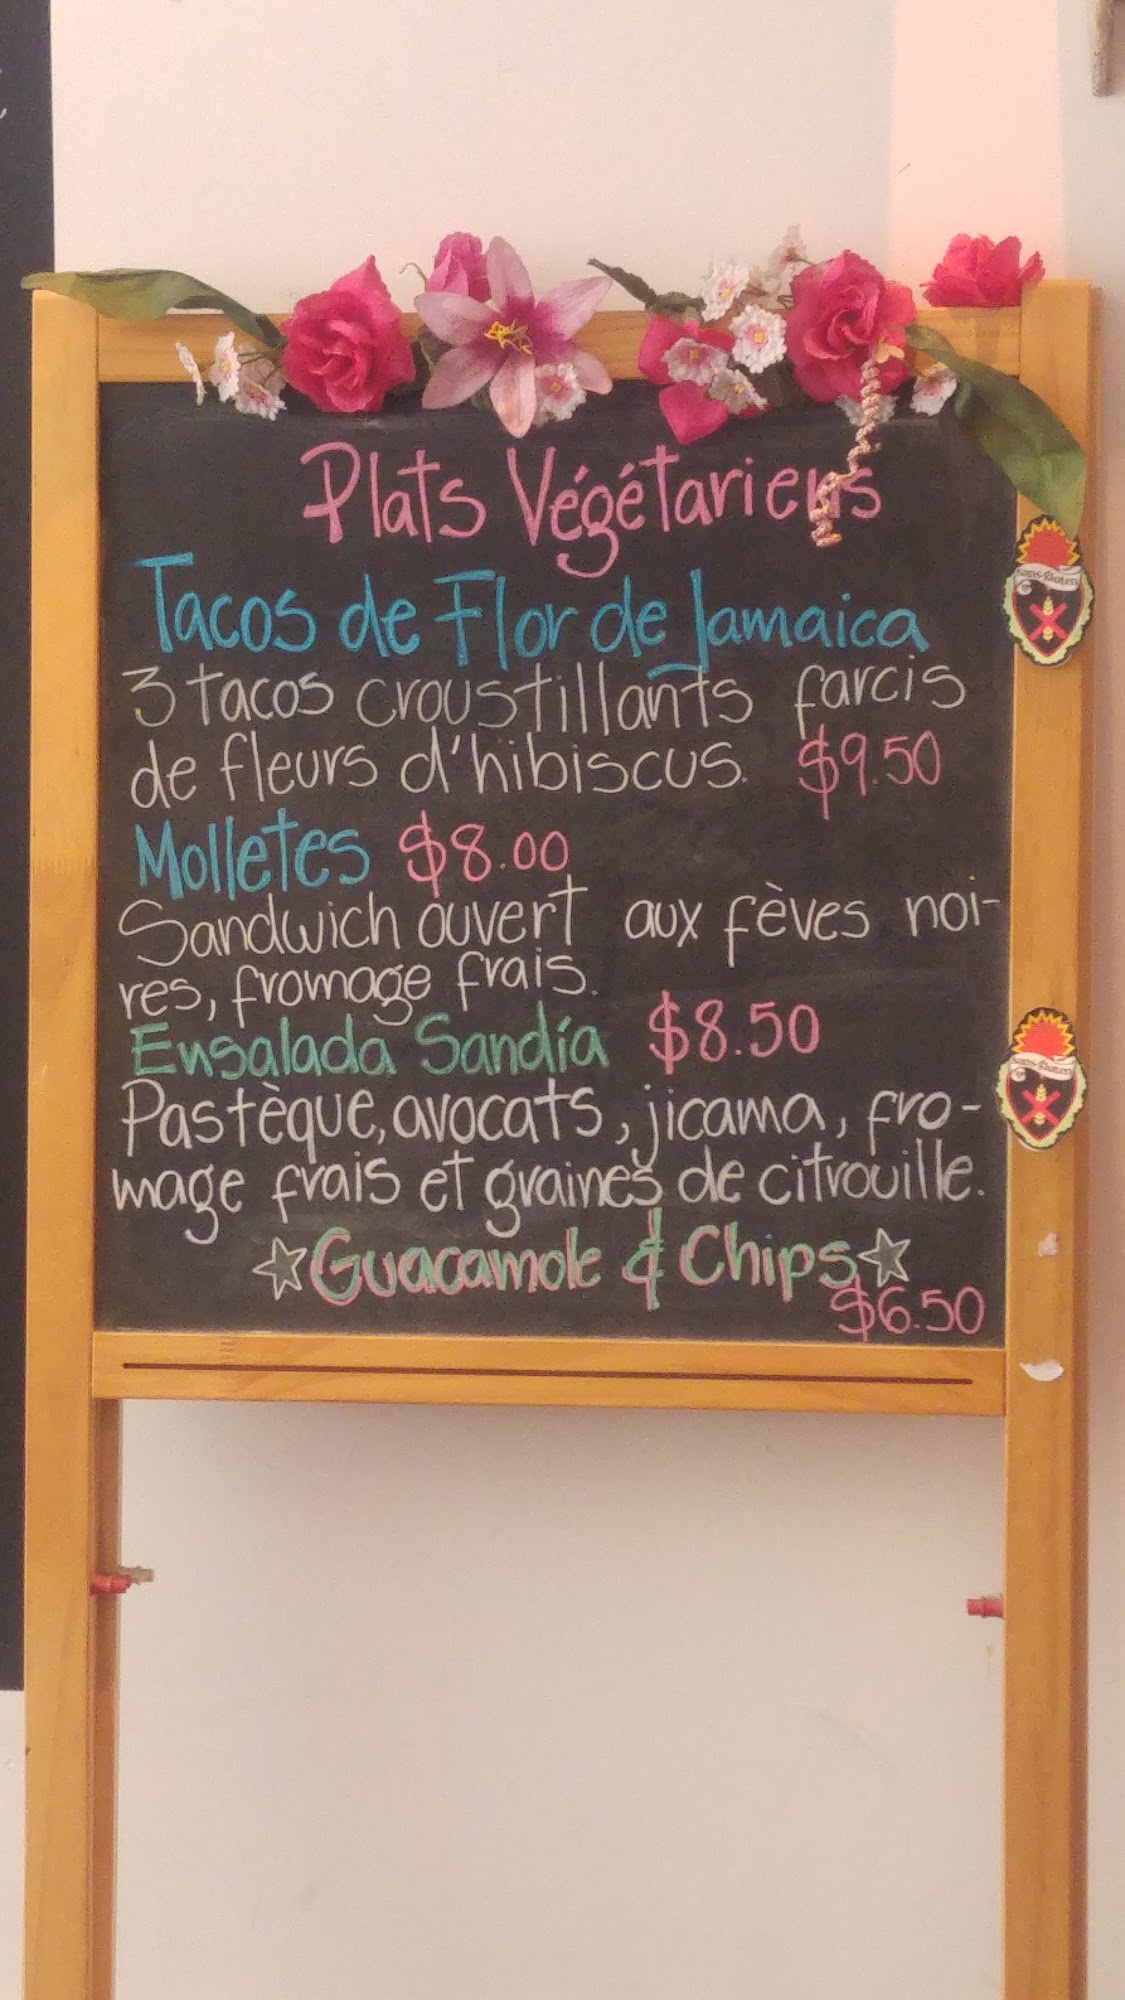 Plats Végétariens
Tacos de Flor de Jamaica
3 tacos croustillants farcis
de fleurs d'hibiscus. $9.50
Molletes $8.00
Sandwich ouvert aux fèves noi-
res, fromage frais.
Ensalada Sandía $8.50
Pastèque, avocats, jicama, fro-
mage frais et graines de citrouille.
Guacamole & Chips
$6.50
sans gluten
sans gluten